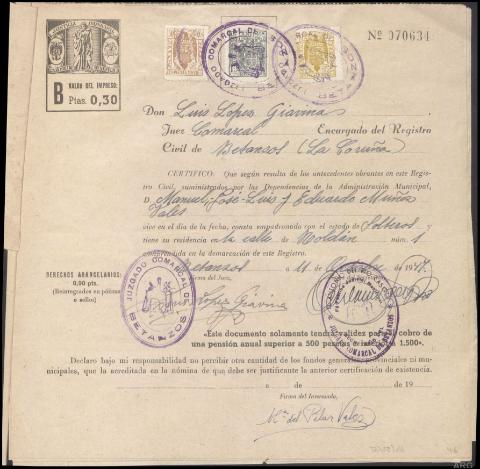 JUSTICIA MUNICIPAL
B VALOR DEL IMPRESO:
Ptas. 0,30
Nº 070634
JUZGADO COMARCAL DE BETANZOS
Don Luis López Giavina
Juez Comarcal Encargado del Registro
Civil de Betanzos (La Coruña)
CERTIFICO: Que según resulta de los antecedentes obrantes en este Regis-
tro Civil, suministrados por las Dependencias de la Administración Municipal,
D. Manuel, José-Luis y Eduardo Muñoz
Vales
vive en el día de la fecha, consta empadronado con el estado de Solteros y
tiene su residencia en la calle de Roldán núm. 1
comprendida en la demarcación de este Registro.
Betanzos a 11 de Octubre de 1947.
DERECHOS ARANCELARIOS:
0,00 ptas.
(Reintegrados en pólizas
o sellos)
Firma del Juez,
López Giavina
JUZGADO COMARCAL DE BETANZOS
«Este documento solamente tendrá validez para el cobro de
una pensión anual superior a 500 pesetas e inferior a 1.500».
Declaro bajo mi responsabilidad no percibir otra cantidad de los fondos generales, provinciales ni mu-
nicipales, que la acreditada en la nómina de que debe ser justificante la anterior certificación de existencia.
a de de 19
Firma del Interesado,
Mª del Pilar Vales